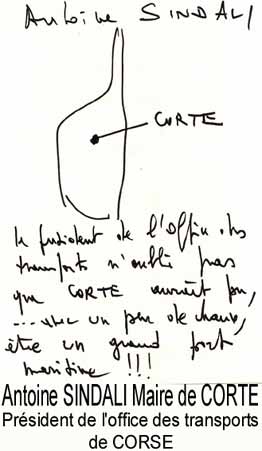 Antoine SINDALI
CORTE
Le président de l'Office des
transports n'oublie pas
que CORTE aurait pu,
... avec un peu de chance,
être un grand port
maritime !!!
Antoine SINDALI Maire de CORTE
Président de l'office des transports
de CORSE